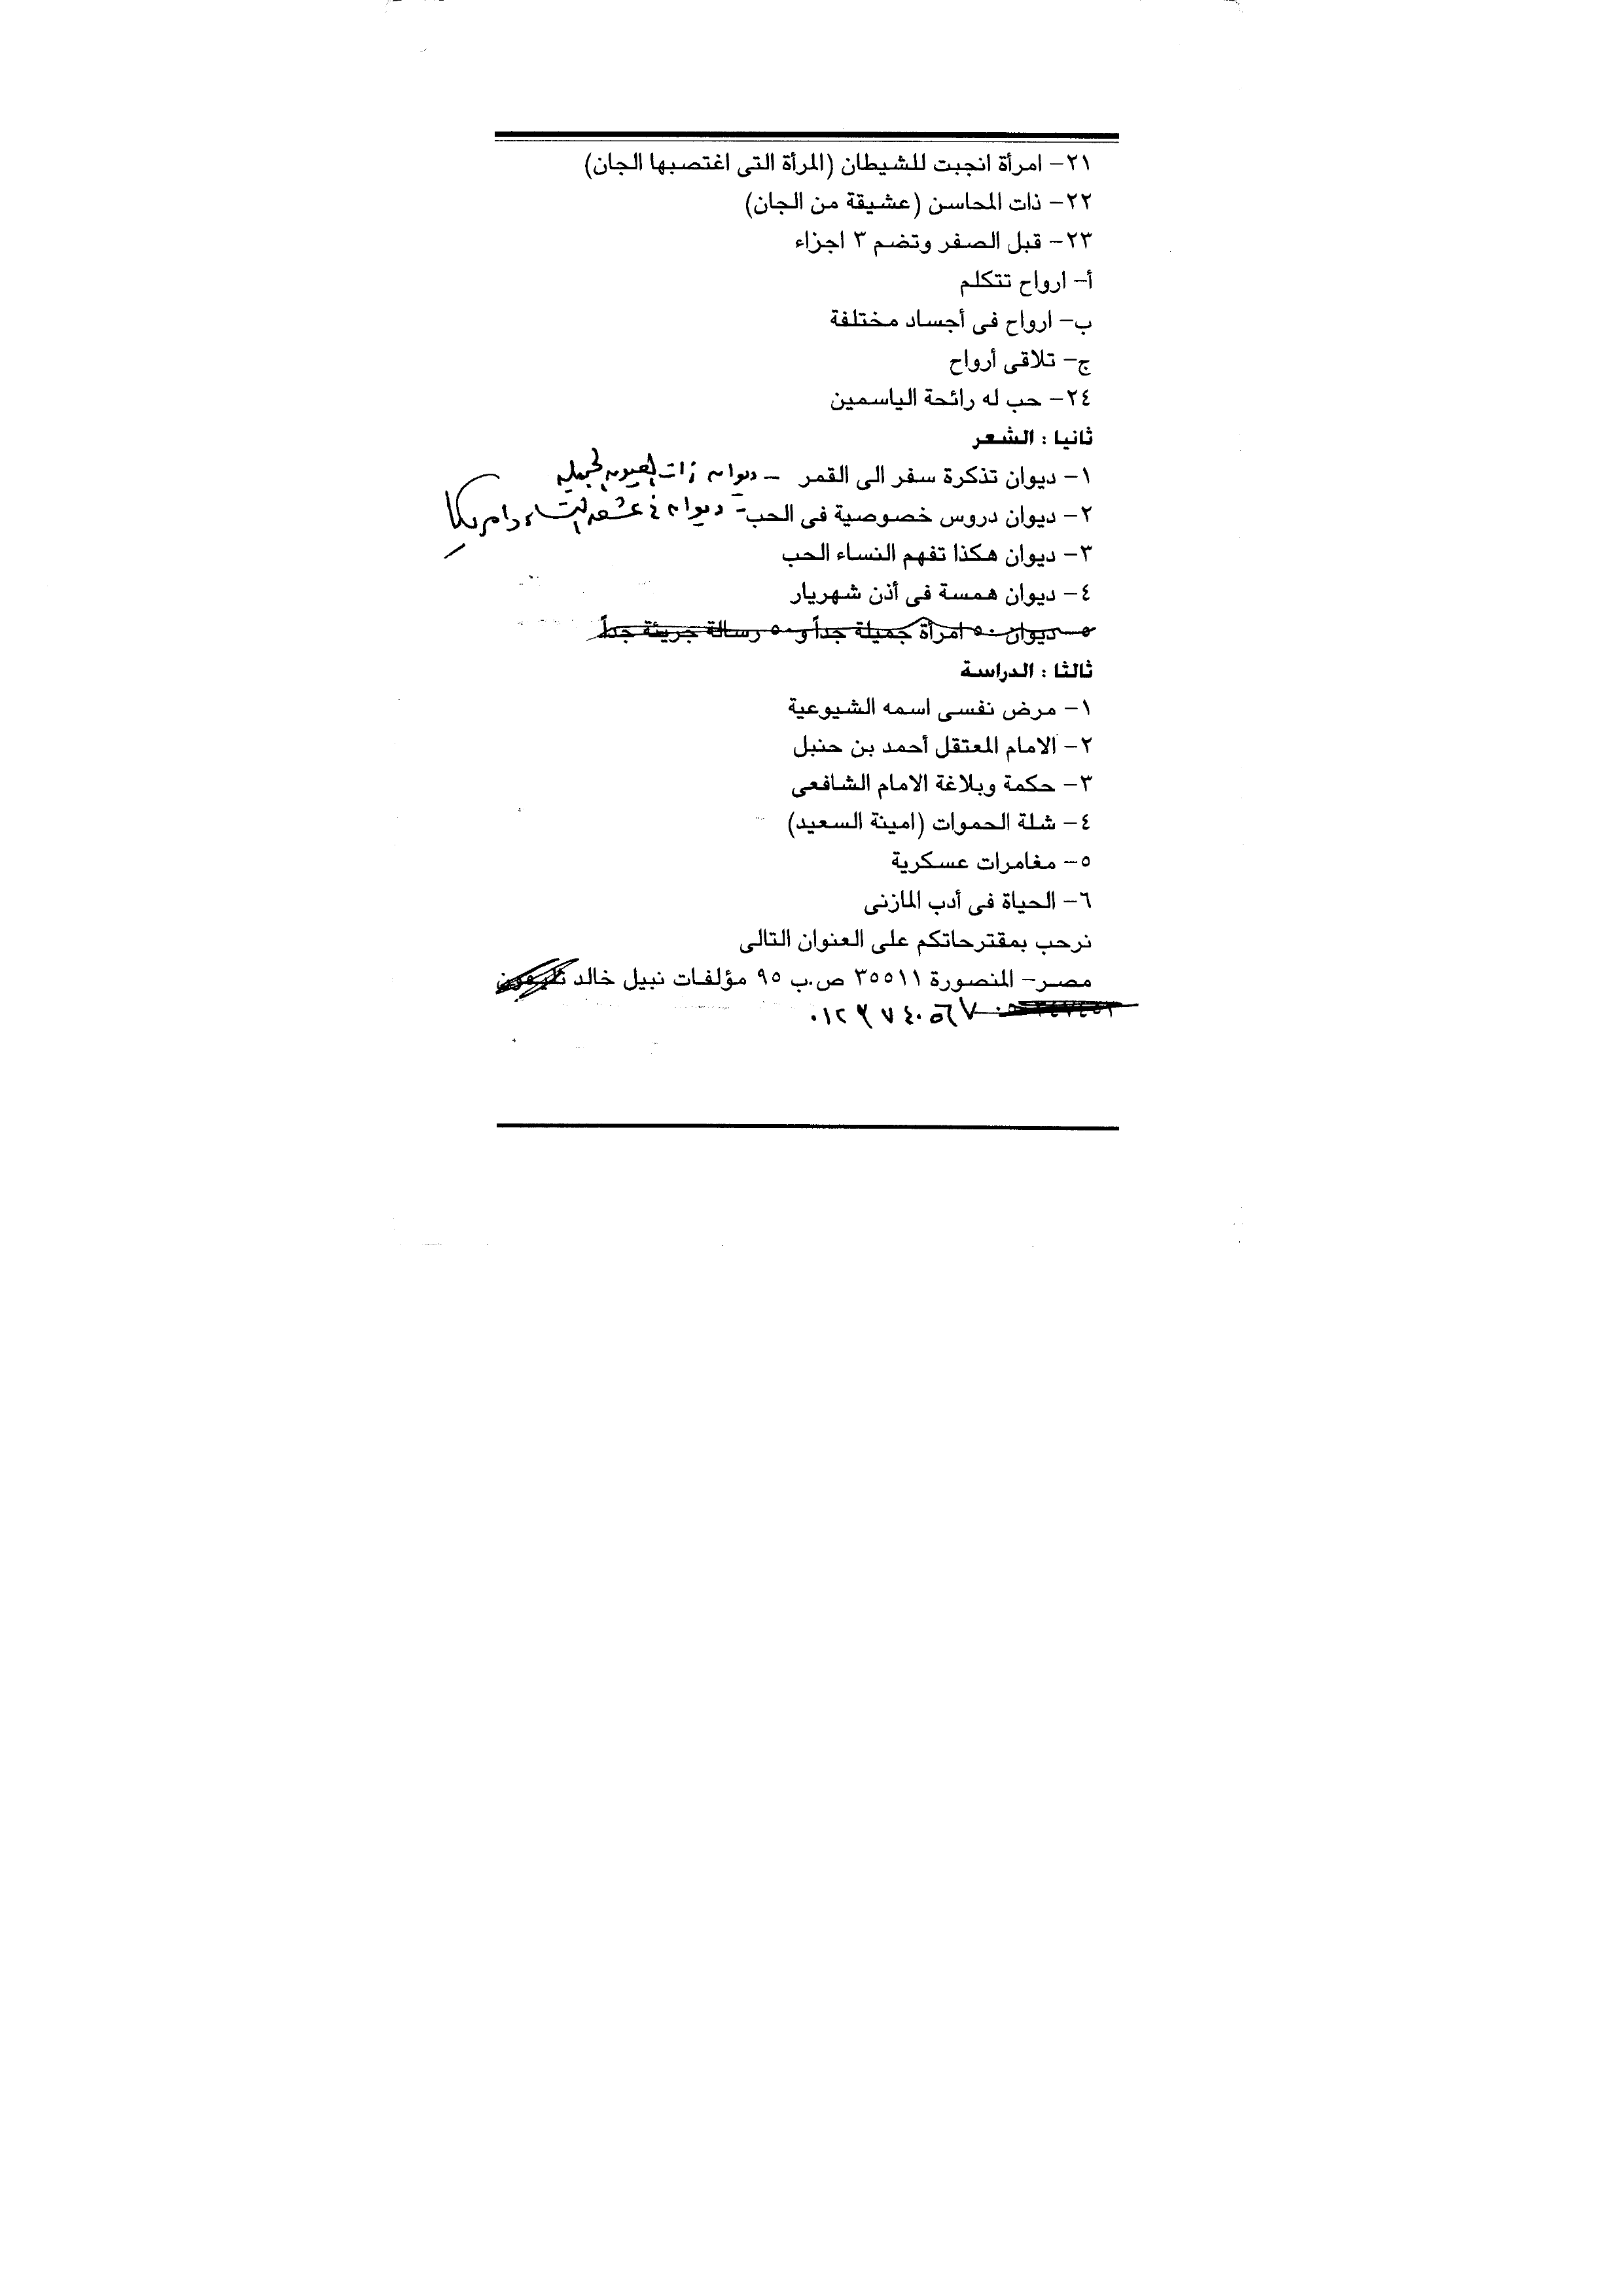 ٢١- امرأة انجبت للشيطان (المرأة التى اغتصبها الجان)
٢٢- ذات المحاسن (عشيقة من الجان)
٢٣- قبل الصفر وتضم ٣ اجزاء
أ- ارواح تتكلم
ب- ارواح فى أجساد مختلفة
ج- تلاقى أرواح
٢٤- حب له رائحة الياسمين
ثانيا : الشعر
١- ديوان تذكرة سفر الى القمر - ديوان ذات العيون الجميلة
٢- ديوان دروس خصوصية فى الحب - ديوان فى عشق النساء وأمريكا
٣- ديوان هكذا تفهم النساء الحب
٤- ديوان همسة فى أذن شهريار
٥- ديوان ٥٠ امرأة جميلة جداً و ٥٠ رسالة جريئة جداً
ثالثا : الدراسة
١- مرض نفسى اسمه الشيوعية
٢- الامام المعتقل أحمد بن حنبل
٣- حكمة وبلاغة الامام الشافعى
٤- شلة الحموات (امينة السعيد)
٥- مغامرات عسكرية
٦- الحياة فى أدب المازنى
نرحب بمقترحاتكم على العنوان التالى
مصر- المنصورة ٣٥٥١١ ص.ب ٩٥ مؤلفات نبيل خالد تليفون